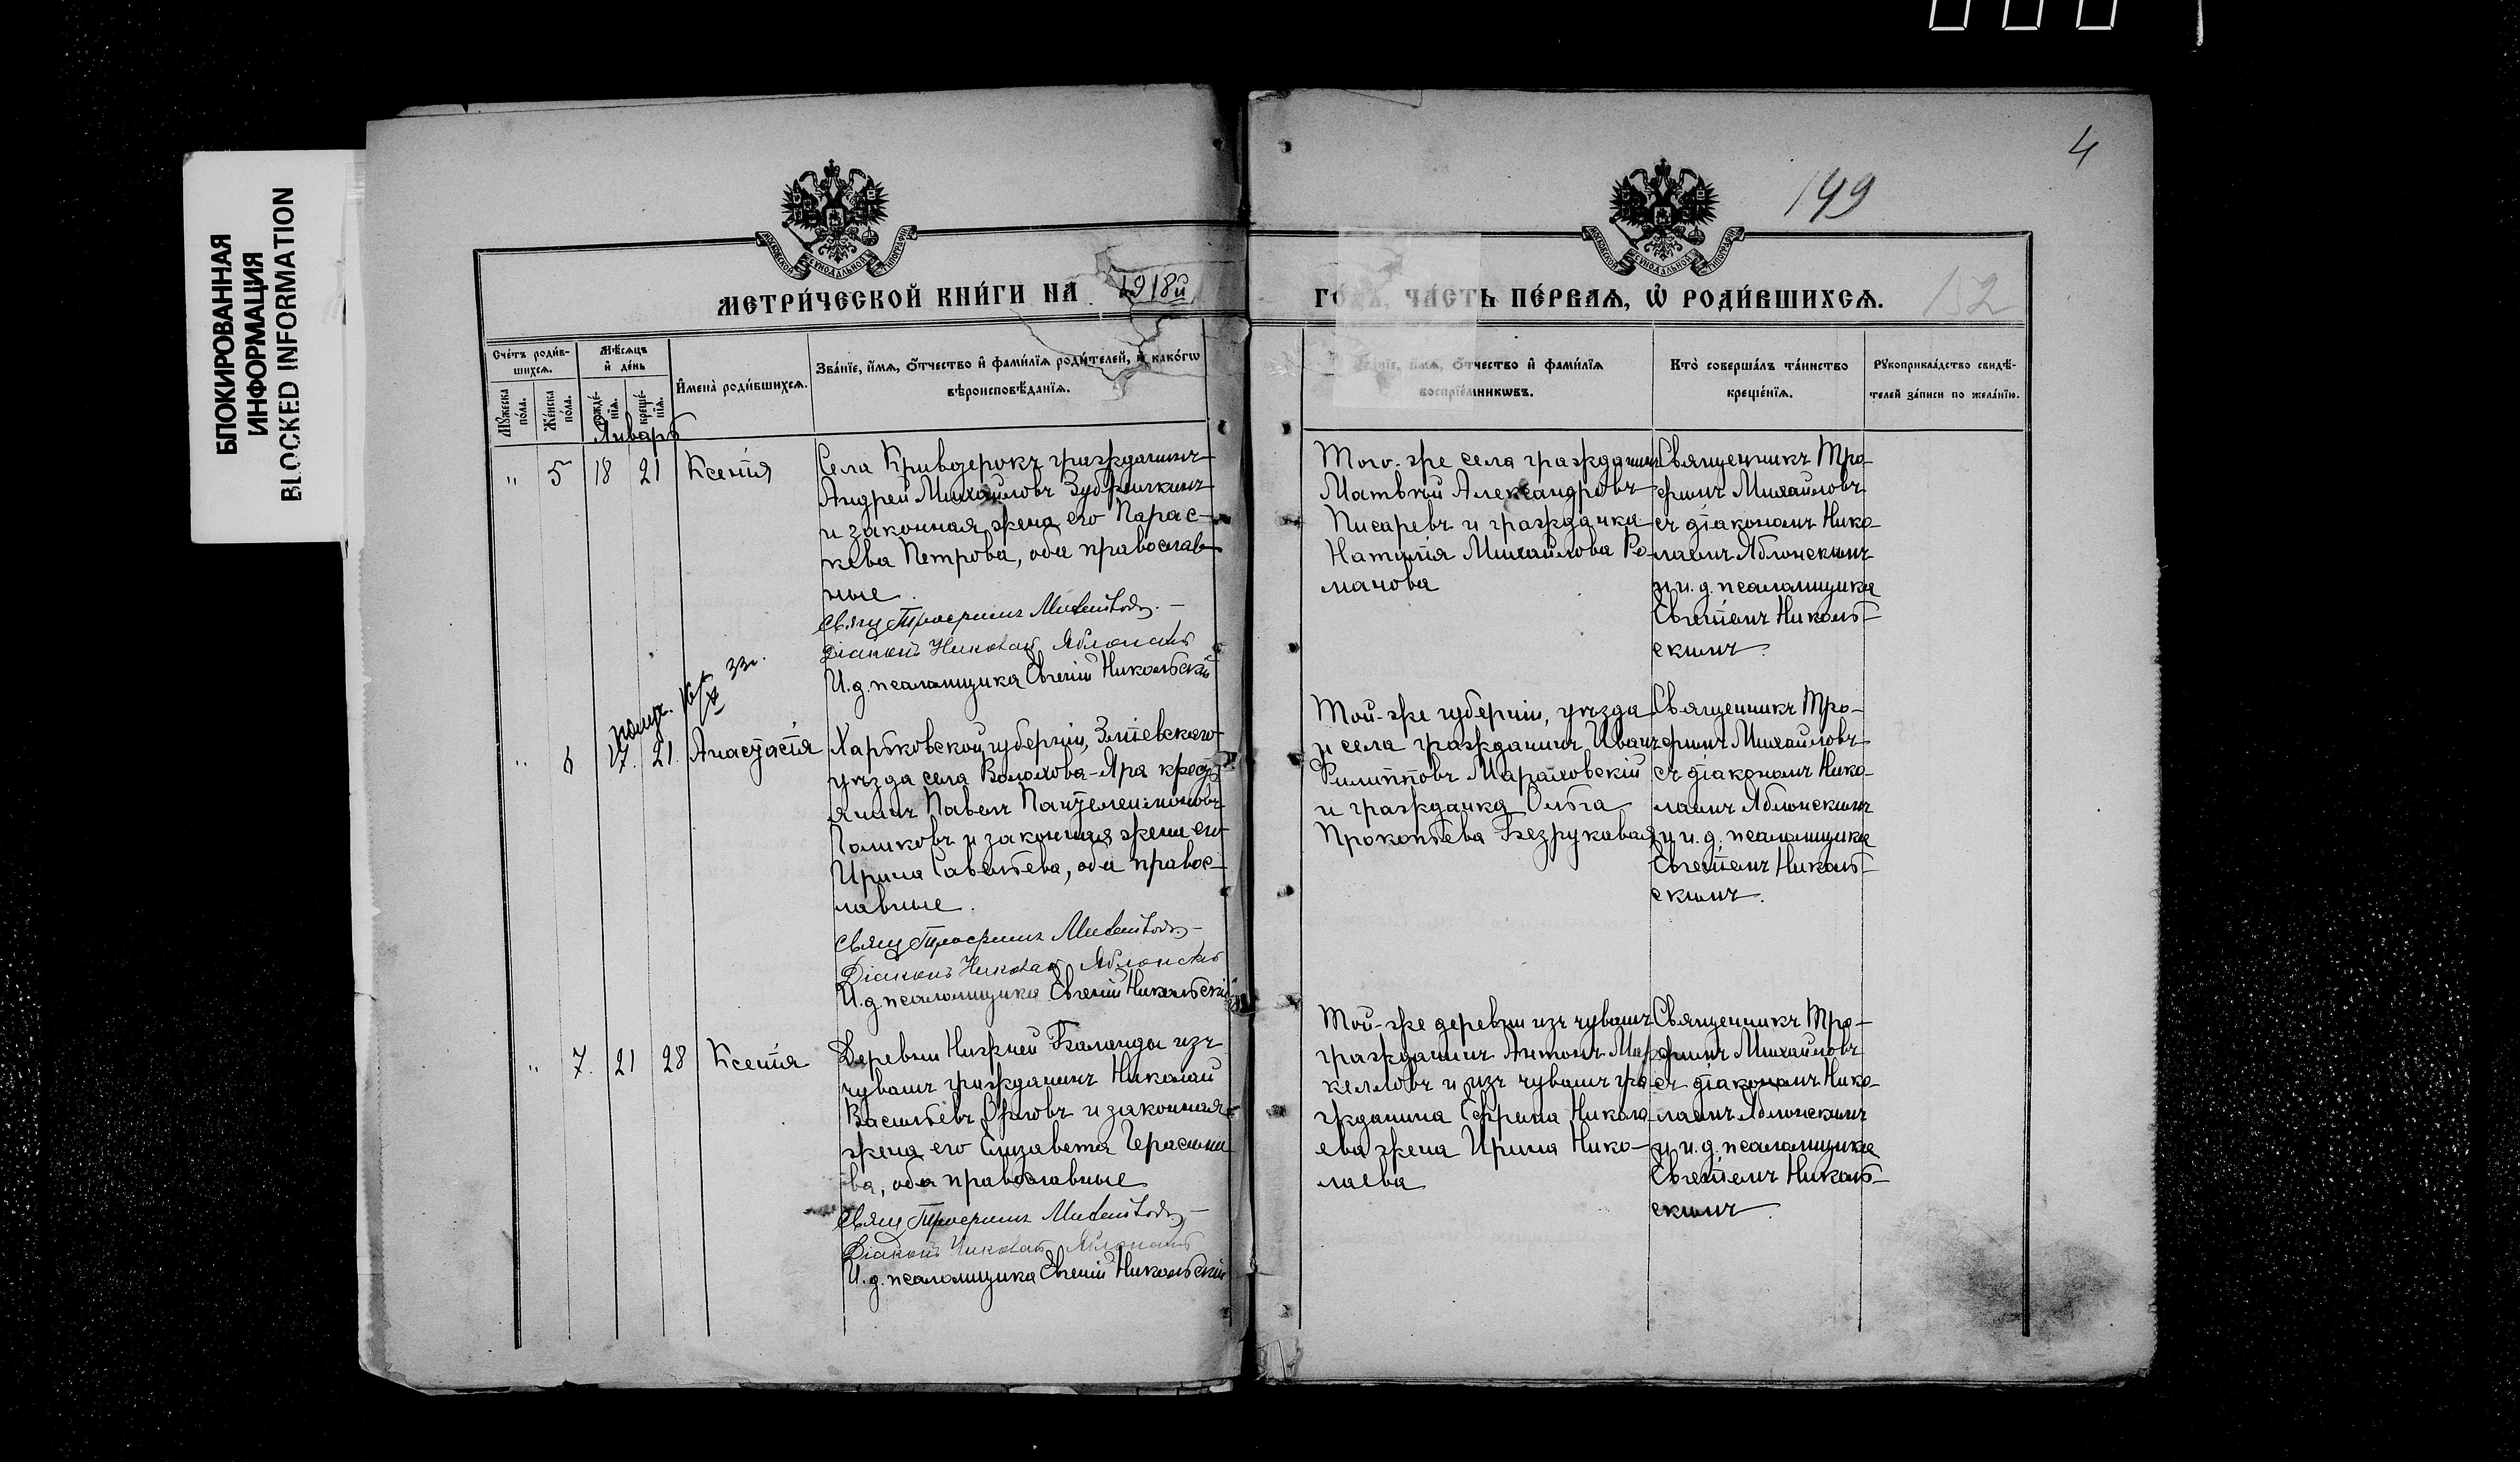 БЛОКИРОВАННАЯ
ИНФОРМАЦИЯ
BLOCKED INFORMATION
4
149
МОСКОВСКОЙ СѴНОДАЛЬНОЙ ТИПОГРАФІИ
МОСКОВСКОЙ СѴНОДАЛЬНОЙ ТИПОГРАФІИ
МЕТРИ́ЧЕСКОЙ КНИ́ГИ НА 1918й
ГО́ДЪ, ЧА́СТЬ ПЕ́РВАѦ, Ѡ҆ РОДИ́ВШИХСѦ.
152
Сче́тъ роди́в-
шихсѧ.
Мꙋ́жеска
по́ла.
Же́нска
по́ла.
Мѣ́сѧцъ
и҆ де́нь
рожде́-
нїѧ.
креще́-
нїѧ.
И҆мена̀ роди́вшихсѧ.
Зва́нїе, и҆́мѧ, ѻ҆́тчество и҆ фами́лїѧ роди́телей, и҆ како́гѡ
вѣроисповѣ́данїѧ.
Зва́нїе, и҆́мѧ, ѻ҆́тчество и҆ фами́лїѧ
воспрїе́мникѡвъ.
Кто̀ соверша́лъ та́инство
креще́нїѧ.
Рꙋкоприкла́дство свидѣ́-
телей за́писи по жела́нїю.
Январь
" 5 18 21 Ксенія
Села Кривозерокъ гражданинъ
Андрей Михайловъ
и законная жена его Парас-
кева Петрова, оба православ-
ные.
Свящ Трофимъ Михайловъ
Діаконъ Николай Яблонскій
И. д. псаломщика Евгеній Никольскій
Того-же села гражданинъ
Матвѣй Александровъ
Писаревъ и гражданка
Наталія Михайлова Ро-
манова
Священникъ Тро-
фимъ Михайловъ
съ діакономъ Нико-
лаемъ Яблонскимъ
и и. д. псаломщика
Евгеніемъ Николь-
скимъ.
получ.
" 6 17. 21. Анастасія
Харьковской губерніи, Зміевскаго
уѣзда села Волохова-Яра кресть
янинъ Павелъ Пантелеимоновъ
Голиковъ и законная жена его
Ирина Савельева, оба правос-
лавные.
Свящ Трофимъ Михайловъ
Діаконъ Николай Яблонскій
И. д. псаломщика Евгеній Никольскій
Той-же губерніи, уѣзда
и села гражданинъ Иванъ
Филипповъ Мараховскій
и гражданка Ольга
Прокопьева Безрукавая
Священникъ Тро-
фимъ Михайловъ
съ діакономъ Нико-
лаемъ Яблонскимъ
и и. д. псаломщика
Евгеніемъ Николь-
скимъ.
" 7. 21 28 Ксенія
Деревни Нижней Баланды изъ
чувашъ гражданинъ Николай
Васильевъ Орловъ и законная
жена его Елизавета Герасимо
ва, оба православные
Свящ Трофимъ Михайловъ
Діаконъ Николай Яблонскій
И. д. псаломщика Евгеній Никольскій
Той-же деревни изъ чувашъ
гражданинъ Антонъ Мар
келловъ и изъ чувашъ гра-
жданина Сергѣя Никола
ева жена Ирина Нико-
лаева
Священникъ Тро-
фимъ Михайловъ
съ діакономъ Нико-
лаемъ Яблонскимъ
и и. д. псаломщика
Евгеніемъ Николь-
скимъ.